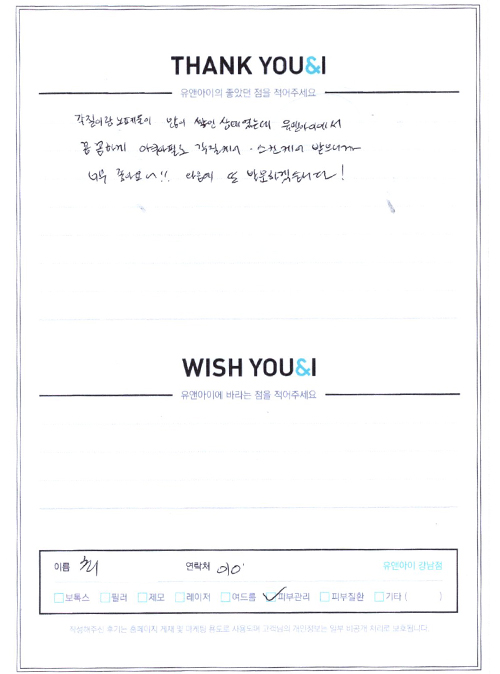 THANK YOU&I
유앤아이의 좋았던 점을 적어주세요
각질이랑 노폐물이 많이 쌓인 상태였는데 유앤아이에서
꼼꼼하게 아쿠아필도 각질케어 · 스킨케어 받으니까
너무 좋아요!! 다음에 또 방문하겠습니다!
WISH YOU&I
유앤아이에 바라는 점을 적어주세요
이름 최 연락처 010 유앤아이 강남점
보톡스 필러 제모 레이저 여드름 피부관리 피부질환 기타 ( )
작성해주신 후기는 홈페이지 게재 및 마케팅 용도로 사용되며 고객님의 개인정보는 일부 비공개 처리로 보호됩니다.